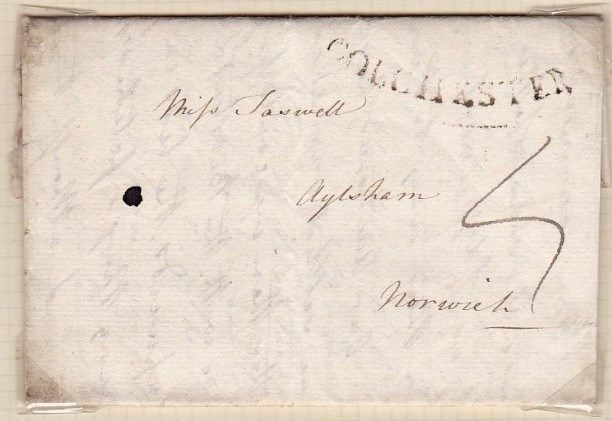 COLCHESTER
Miſs Taswell
Aylsham
5
Norwich